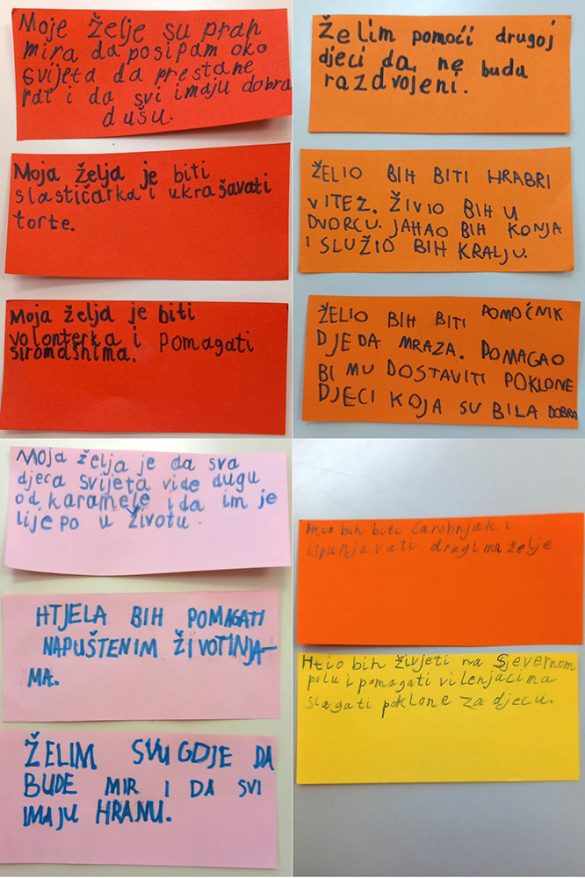 Moje želje su prah
mira da posipam oko
svijeta da prestane
rat i da svi imaju dobra
dušu.
Moja želja je biti
slastičarka i ukrašavati
torte.
Moja želja je biti
volonterka i pomagati
siromašnima.
Želim pomoći drugoj
djeci da, ne budu
razdvojeni.
ŽELIO BIH BITI HRABRI
VITEZ. ŽIVIO BIH U
DVORCU. JAHAO BIH KONJA
I SLUŽIO BIH KRALJU.
ŽELIO BIH BITI POMOĆNIK
DJEDA MRAZA. POMAGAO
BI MU DOSTAVITI POKLONE
DJECI KOJA SU BILA DOBRA
Moja želja je da sva
djeca svijeta vide dugu
od karamele i da im je
lijepo u životu.
HTJELA BIH POMAGATI
NAPUŠTENIM ŽIVOTINJA-
MA.
ŽELIM SVUGDJE DA
BUDE MIR I DA SVI
IMAJU HRANU.
Htio bih biti čarobnjak i
ispunjavati drugima želje.
Htio bih živjeti na Sjevernom
polu i pomagati vilenjacima
slagati poklone za djecu.